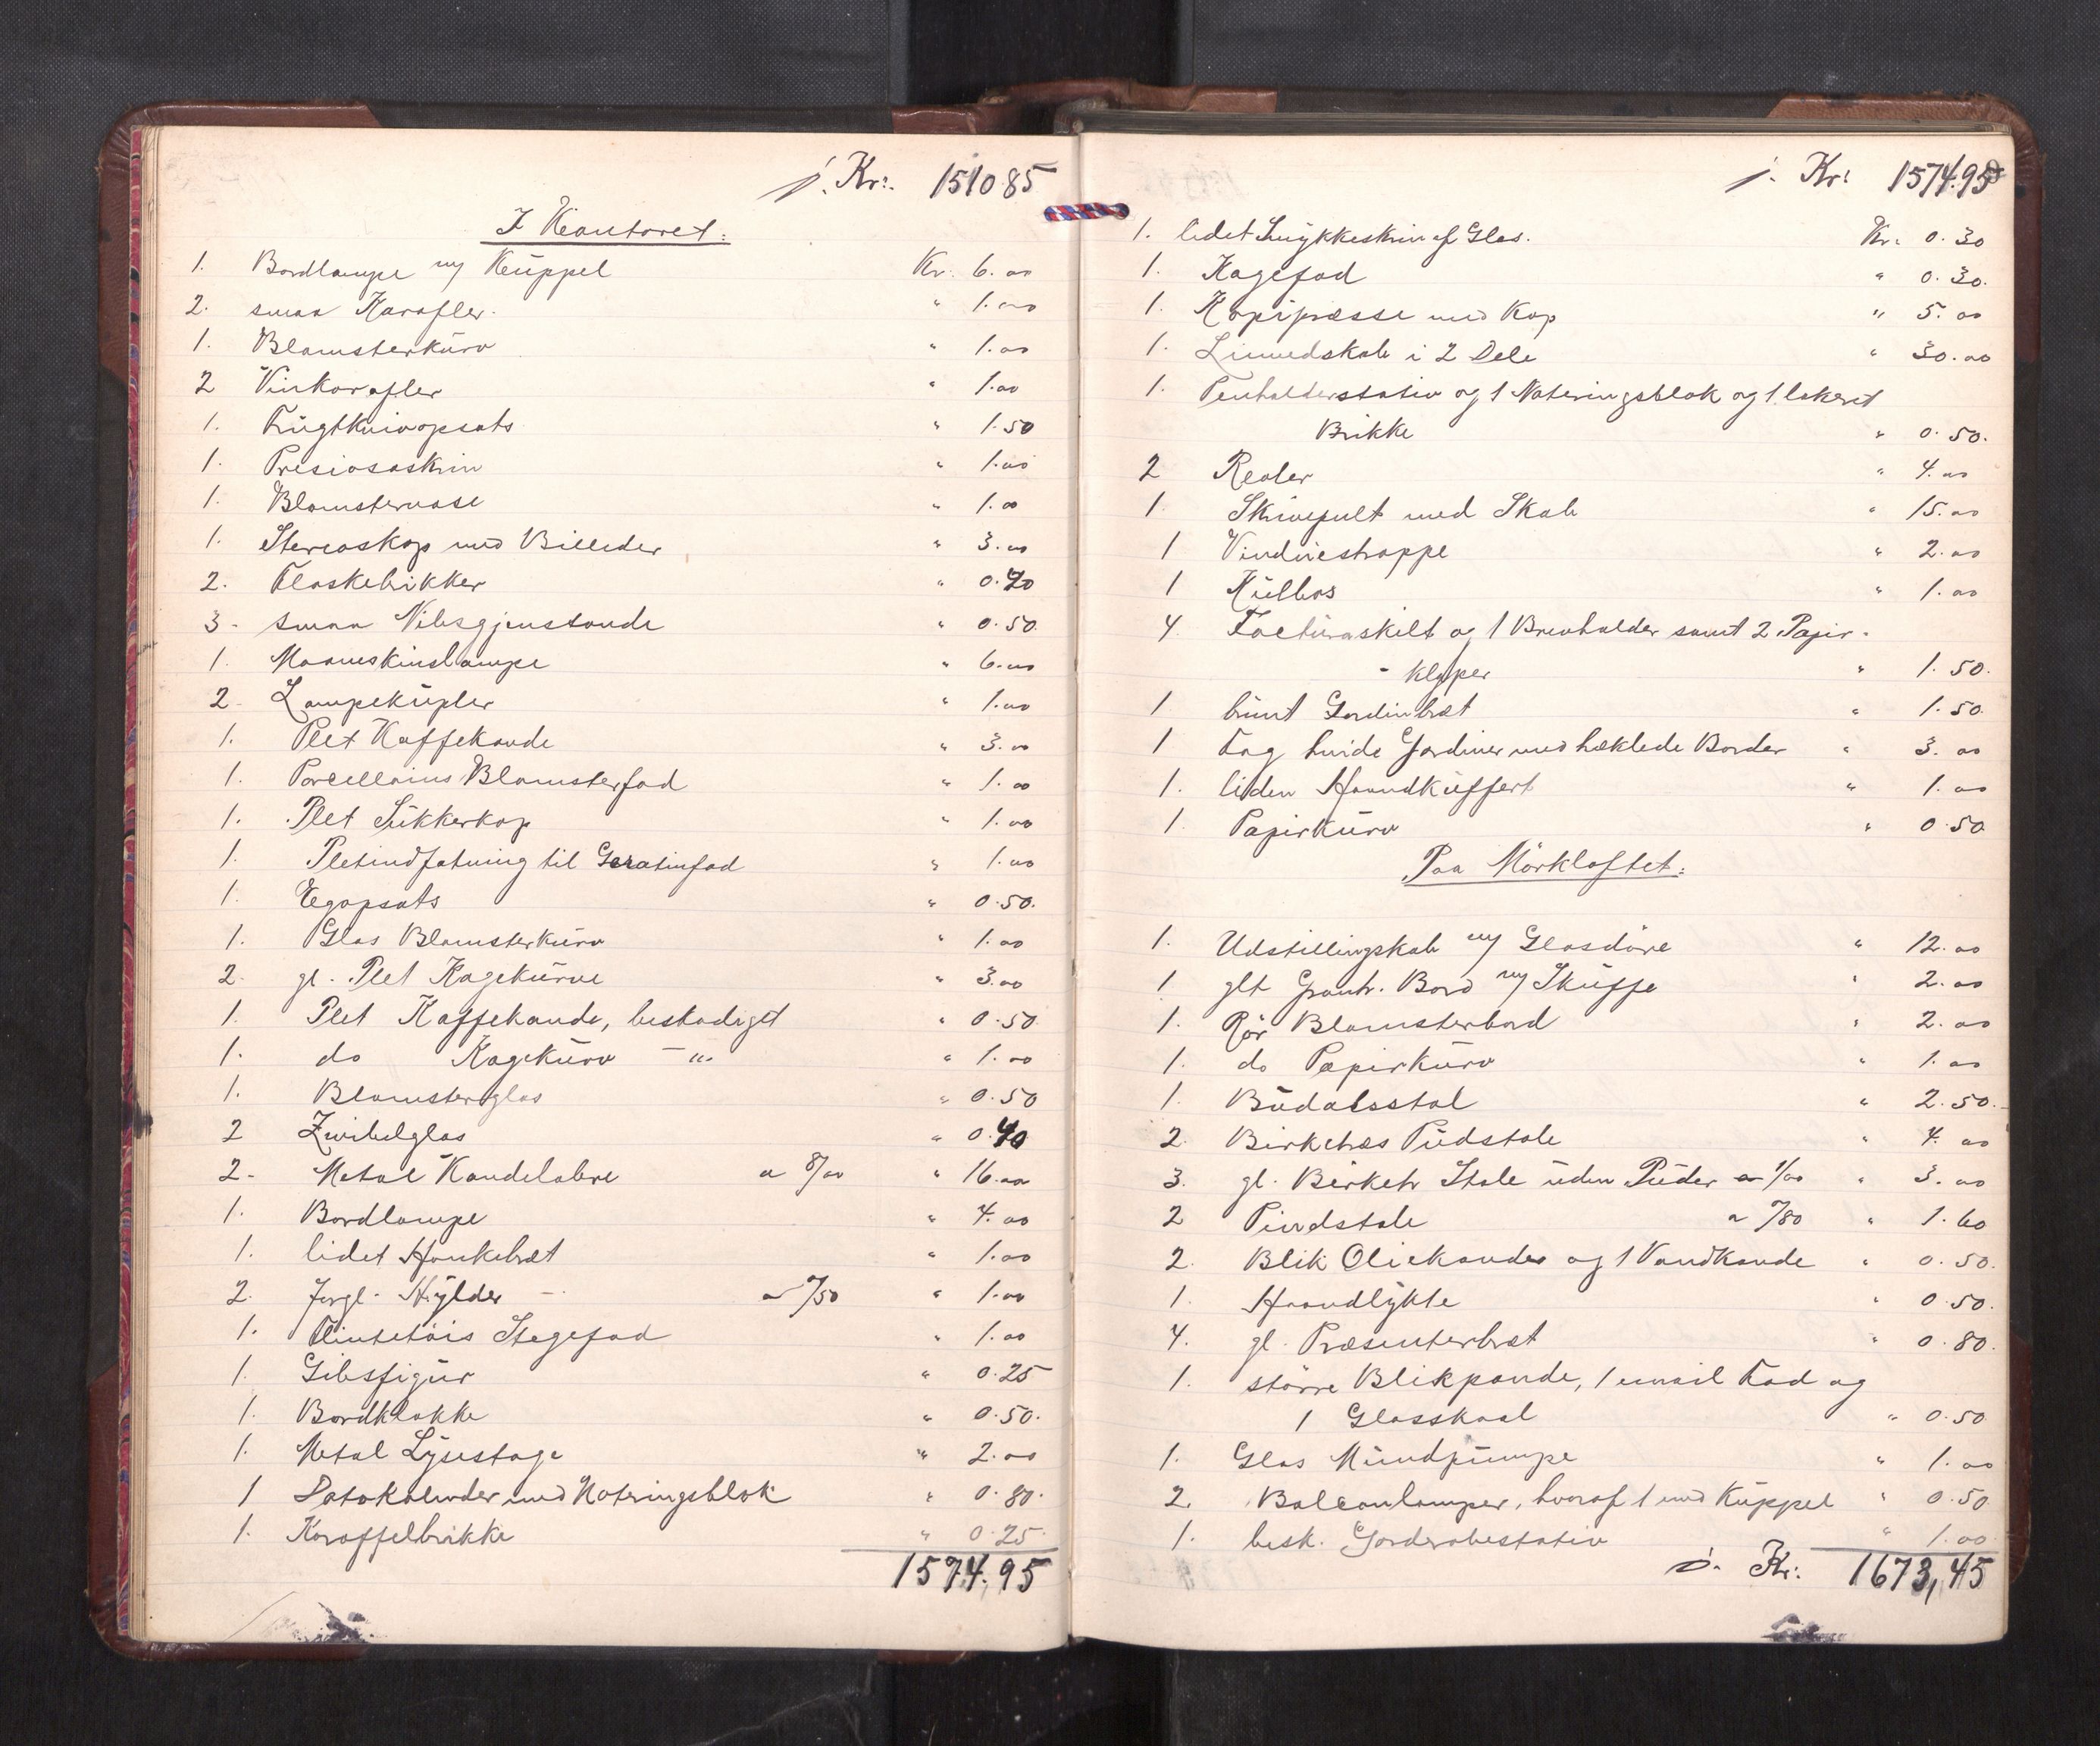 Kr. 1510.85
I Kontoret:
1. Bordlampe m/ Kuppel Kr. 6.00
2. smaa Karafler " 1.00
1. Blomsterkurv " 1.00
2 Vinkarafler " 1.00
1. Frugtknivopsats " 1.50
1. Presiosaskrin " 1.00
1. Blomstervase " 1.00
1. Stereoskop med Billeder " 3.00
2. Flaskebrikker " 0.20
3 - smaa Nibsgjenstande " 0.50
1. Maaneskinslampe " 6.00
2 - Lampekupler " 1.00
1. Plet Kaffekande " 3.00
1. Porcellains Blomsterfad " 1.00
1. Plet Sukkerkop " 1.00
1. Pletindfatning til Geratinfad " 1.00
1. Egopsats " 0.50.
1. Glas Blomsterkurv " 1.00
2. gl. Plet Kagekurve " 3.00
1. Plet Kaffekande, beskadiget " 0.50
1. do Kagekurv - " - " 1.00
1. Blomsterglas " 0.50
2 Zwibelglas " 0.40
2 - Metal Kandelabre a 8/00 " 16.00
1. Bordlampe " 4.00
1. lidet Hankebræt " 1.00
2. forgl. Hylder - a "/50 " 1.00
1. Flintetöis Stegefad " 1.00
1. Gibsfigur " 0.25
1. Bordklokke " 0.50.
1. Metal Lysestage " 2.00
1 Datokalender med Noteringsblok " 0.80.
1. Karaffelbrikke " 0.25.
1574.95
Kr: 1574.95
1. lidet Smykkeskrin af Glas. Kr. 0.30
1. Kagefad " 0.30.
1. Kopipresse med Kop " 5.00
1. Linnedskab i 2 Dele " 30.00
1. Penholderstativ og 1 Noteringsblok og 1 lakeret
Brikke " 0.50.
2 Reoler " 4.00
1. Skrivepult med Skab " 15.00
1 Vinduestrappe " 2.00
1 Kulbos " 1.00
4. Facturaskilt og 1 Brevholder samt 2 Papir-
- klyper " 1.50.
1 brunt Gardinbræt " 1.50.
1 Fag hvide Gardiner med hæklede Border " 3.00
1. liden Haandkuffert " 1.00
1. Papirkurv " 0.50
Paa Mörkloftet:
1. Udstillingskab m/ Glasdöre " 12.00
1 glt Grantr. Bord m/ Skuffe " 2.00
1. Rör Blomsterbord " 2.00
1. do Papirkurv " 1.00
1. Budalsstol " 2.50.
2. Birketræs Pudstole " 4.00
3. gl. Birketr Stole uden Puder a 1/00 " 3.00
2 Pindstole a "/80 " 1.60
2. Blik Oliekander og 1 Vandkande " 0.50.
1. Haandlykte " 0.50.
4. gl. Præsenterbræt " 0.80.
1. större Blikpande, 1 email Fad og
1 Glasskaal " 0.50
1. Glas Mundpumpe " 1.00
2. Balconlamper, hvoraf 1 med Kuppel " 0.50
1. besk. Garderobestativ " 1.00
Kr: 1673,45